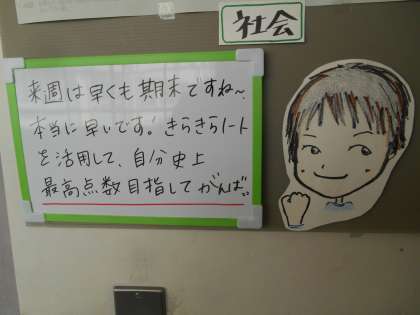 社会
来週は早くも期末ですね〜、
本当に早いです!きらきらノート
を活用して、自分史上
最高点数目指してがんば〃